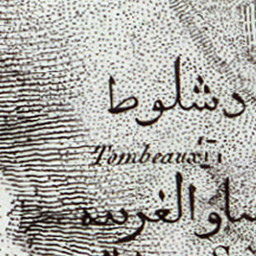 دشلوط
Tombeaux
ساو الغربيه